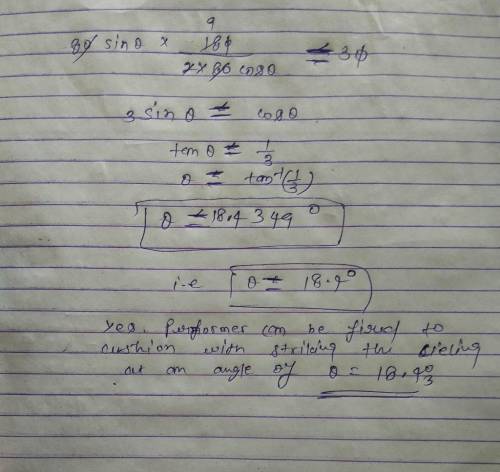 9
80 sinθ × 180 / 2×80 cosθ = 30
3 sin θ = cosθ
tan θ = 1/3
θ = tan⁻¹(1/3)
θ = 18.4349°
i.e θ = 18.4°
Yes. Performer can be fired to
cushion with striking the cieling
at an angle of θ = 18.43°